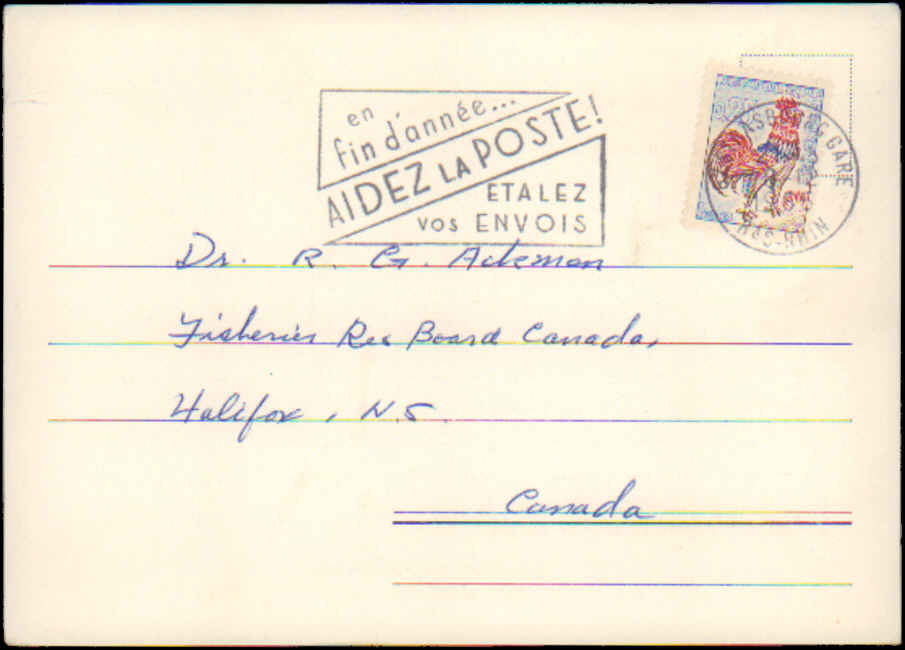 en
fin d'année...
AIDEZ LA POSTE!
ETALEZ
VOS ENVOIS
GARE
Dr. R. G. Ackman
Fisheries Res Board Canada,
Halifax, N.S.
Canada